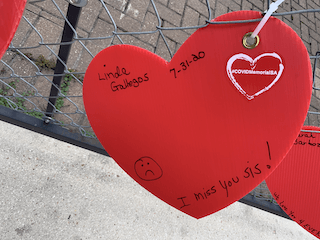 Linda
Gallegos
7-31-20
#COVIDMemorialSA
I miss you sis!